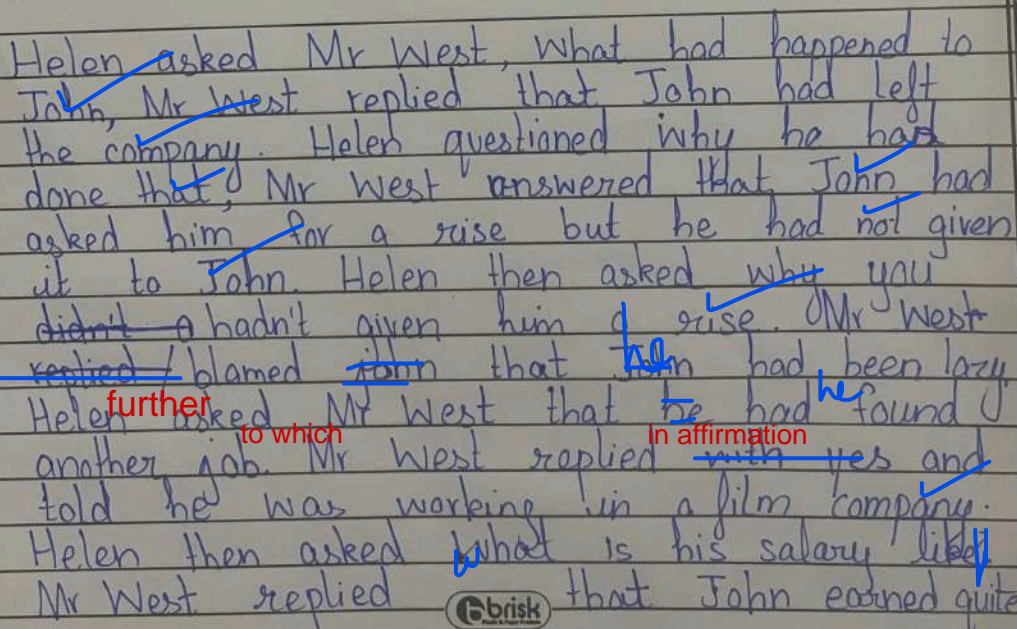 Helen asked Mr West, What had happened to
John, Mr West replied that John had left
the company. Helen questioned why he had
done that, Mr West answered that John had
asked him for a rise but he had not given
it to John. Helen then asked why you
didn't hadn't given him a rise. Mr West
replied / blamed John that he had been lazy
further
Helen asked Mr West that he had he found
to which in affirmation
another job. Mr West replied with yes and
told he was working in a film company.
Helen then asked what is his salary like
Mr West replied that John earned quite
brisk